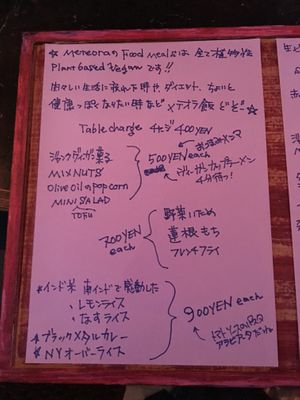 ☆ MeteoraのFood Mealsは 全て植物性
Plant based Vegan です!!
忙々しい生活に疲れた時や ダイエット、ちょいと
健康っぽくなりたい時など メテオラ飯 どぞ☆
Table charge チャージ 400YEN
ジャンクヴィーガン菓子
MIX NUTS
Olive Oilのpopcorn
MINI SALAD
TOFU
500YEN each
ヴィーガンカップラーメン
4分待つ!
700YEN each
野菜いため
蓮根もち
フレンチフライ
☆インド米 南インドで感動した
・レモンライス
・なすライス
☆ブラックメタルカレー
☆NYオーバーライス
900YEN each
トマトソースのパスタ
アラビアータだっけ